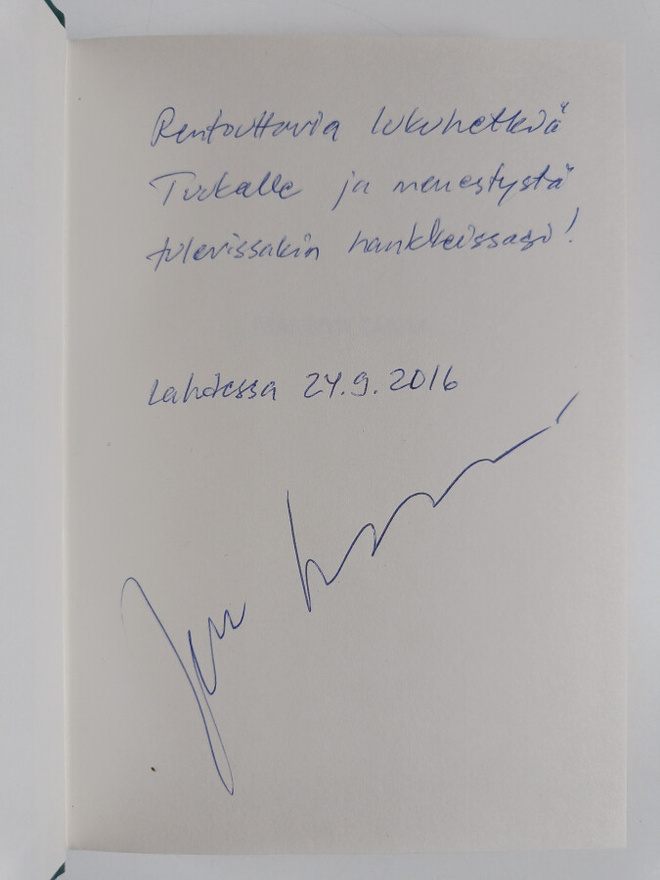 Rentouttavia lukuhetkiä
Tuokalle ja menestystä
tulevissakin hankkeissasi!
Lahdessa 24.9.2016